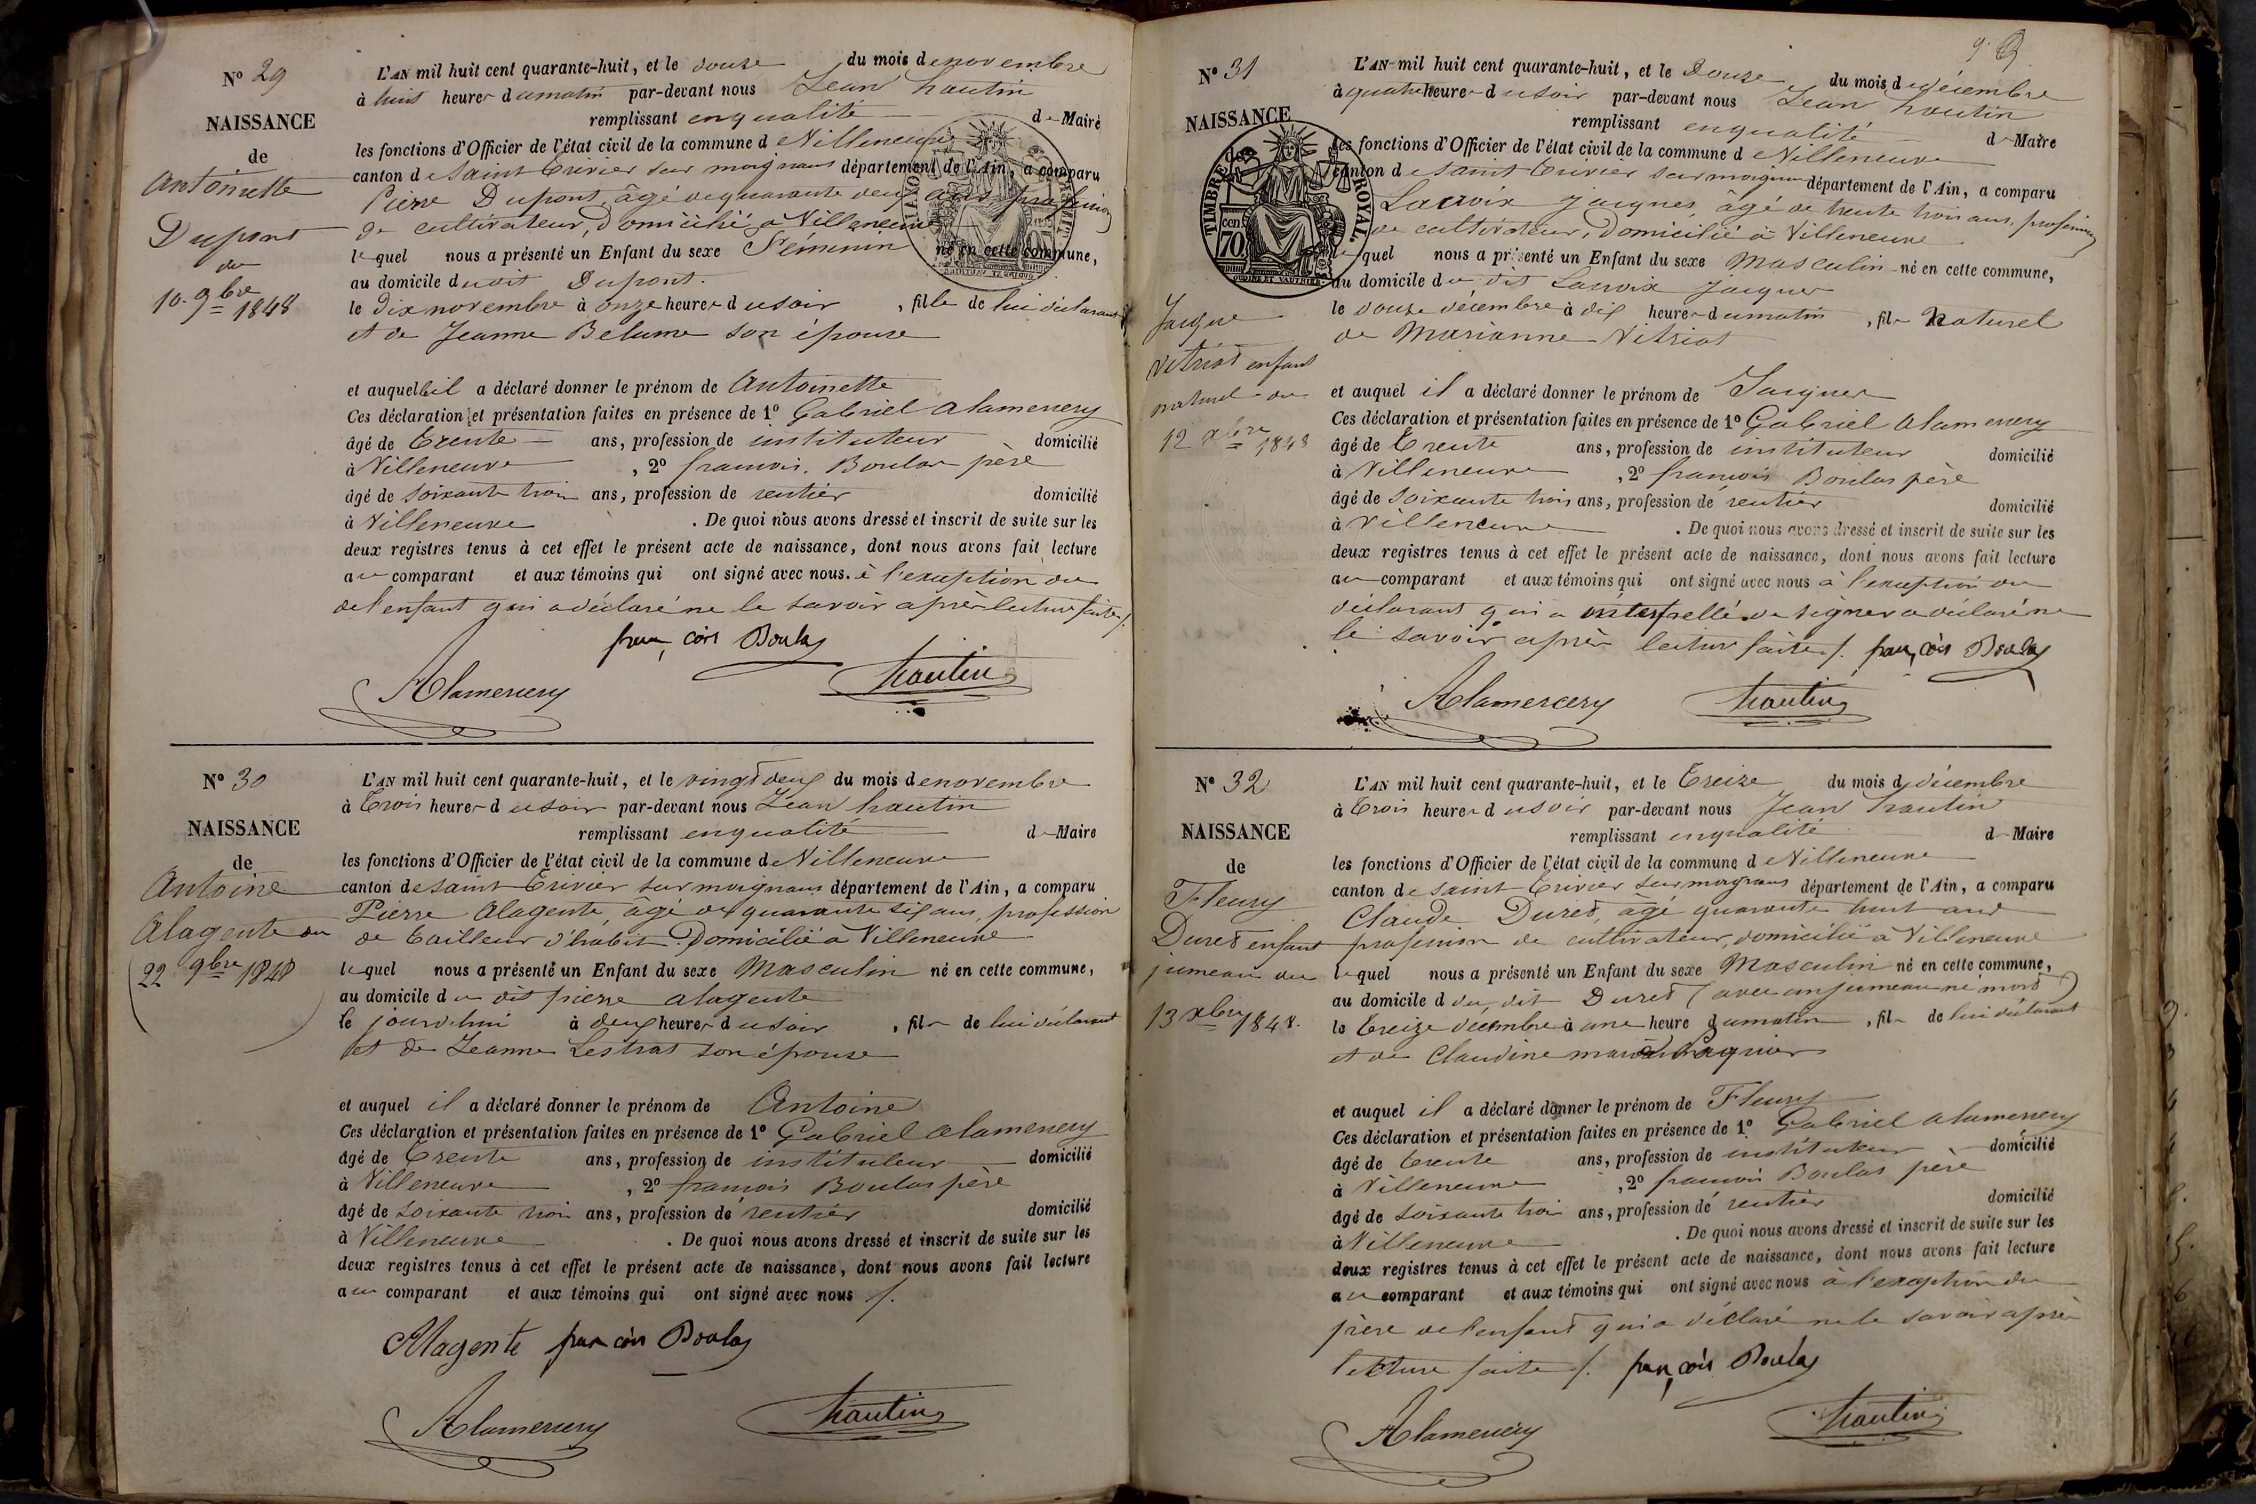 N° 29
NAISSANCE
de
Antoinette
Dupont
du
10. 9bre 1848
L'AN mil huit cent quarante-huit, et le douze du mois de novembre
à huit heures du matin par-devant nous Jean trautin
remplissant en qualité de Maire
les fonctions d'Officier de l'état civil de la commune de Villeneuve
canton de Saint Trivier sur moignans département de l'Ain, a comparu
Pierre Dupont, âgé de quarante deux ans, profession
de cultivateur, Domicilié a Villeneuve
lequel nous a présenté un Enfant du sexe Féminin né en cette commune,
au domicile du dit Dupont.
le dix novembre à onze heures du soir, fille de lui déclarant
et de Jeanne Belume son épouse
et auquel il a déclaré donner le prénom de Antoinette
Ces déclaration et présentation faites en présence de 1° Gabriel alamercery
âgé de trente ans, profession de instituteur domicilié
à Villeneuve, 2° francois Boulas père
âgé de soixante trois ans, profession de rentier domicilié
à Villeneuve. De quoi nous avons dressé et inscrit de suite sur les
deux registres tenus à cet effet le présent acte de naissance, dont nous avons fait lecture
au comparant et aux témoins qui ont signé avec nous. à l'exception du
de l'enfant qui a déclaré ne le savoir après lecture faite /.
françois Boulas
Alamercery trautin
N° 30
NAISSANCE
de
Antoine
Alagente du
22 9bre 1848
L'AN mil huit cent quarante-huit, et le vingt deux du mois de novembre
à trois heures du soir par-devant nous Jean trautin
remplissant en qualité de Maire
les fonctions d'Officier de l'état civil de la commune de Villeneuve
canton de Saint Trivier sur moignans département de l'Ain, a comparu
Pierre Alagente, âgé de quarante six ans, profession
de tailleur d'habit. Domicilié a Villeneuve
lequel nous a présenté un Enfant du sexe Masculin né en cette commune,
au domicile du dit pierre alagente
le jourd'hui à deux heures du soir, fils de lui déclarant
et de Jeanne Lestrat son épouse
et auquel il a déclaré donner le prénom de Antoine
Ces déclaration et présentation faites en présence de 1° Gabriel alamercery
âgé de trente ans, profession de instituteur domicilié
à Villeneuve, 2° francois Boulas père
âgé de soixante trois ans, profession de rentier domicilié
à Villeneuve. De quoi nous avons dressé et inscrit de suite sur les
deux registres tenus à cet effet le présent acte de naissance, dont nous avons fait lecture
au comparant et aux témoins qui ont signé avec nous /.
Alagente françois Boulas
Alamercery trautin
N° 31
NAISSANCE
TIMBRE ROYAL.
70 cen.
Jacque
vitriat enfant
naturel du
12 xbre 1848
L'AN mil huit cent quarante-huit, et le Douze du mois de décembre
à quatre heures du soir par-devant nous Jean trautin
remplissant en qualité de Maire
les fonctions d'Officier de l'état civil de la commune de Villeneuve
canton de saint trivier sur moignans département de l'Ain, a comparu
Lacroix jacques, âgé de trente trois ans, profession
de cultivateur, Domicilié à Villeneuve
lequel nous a présenté un Enfant du sexe Masculin né en cette commune,
au domicile du dit Lacroix jacques
le douze décembre à dix heures du matin, fils naturel
de Marianne Vitriat
et auquel il a déclaré donner le prénom de Jacques
Ces déclaration et présentation faites en présence de 1° Gabriel alamercery
âgé de trente ans, profession de instituteur domicilié
à Villeneuve, 2° francois Boulas père
âgé de soixante trois ans, profession de rentier domicilié
à Villeneuve. De quoi nous avons dressé et inscrit de suite sur les
deux registres tenus à cet effet le présent acte de naissance, dont nous avons fait lecture
au comparant et aux témoins qui ont signé avec nous à l'exception du
déclarant qui a interpellé de signer a déclaré ne
le savoir après lecture faite /. françois Boulas
Alamercery trautin
N° 32
NAISSANCE
de
Fleury
Duret enfant
jumeau du
13 xbre 1848.
L'AN mil huit cent quarante-huit, et le treize du mois de décembre
à trois heures du soir par-devant nous Jean trautin
remplissant en qualité de Maire
les fonctions d'Officier de l'état civil de la commune de Villeneuve
canton de saint trivier sur moignans département de l'Ain, a comparu
Claude Duret, âgé quarante huit ans
profession de cultivateur, domicilié à Villeneuve
lequel nous a présenté un Enfant du sexe Masculin né en cette commune,
au domicile d du dit Duret (avec un jumeau né mort)
le treize décembre à une heure du matin, fils de lui déclarant
et de Claudine
et auquel il a déclaré donner le prénom de Fleury
Ces déclaration et présentation faites en présence de 1° Gabriel alamercery
âgé de trente ans, profession de instituteur domicilié
à Villeneuve, 2° francois Boulas père
âgé de soixante trois ans, profession de rentier domicilié
à Villeneuve. De quoi nous avons dressé et inscrit de suite sur les
deux registres tenus à cet effet le présent acte de naissance, dont nous avons fait lecture
au comparant et aux témoins qui ont signé avec nous à l'exception du
père de l'enfant qui a déclaré ne le savoir après
lecture faite /. françois Boulas
Alamercery trautin